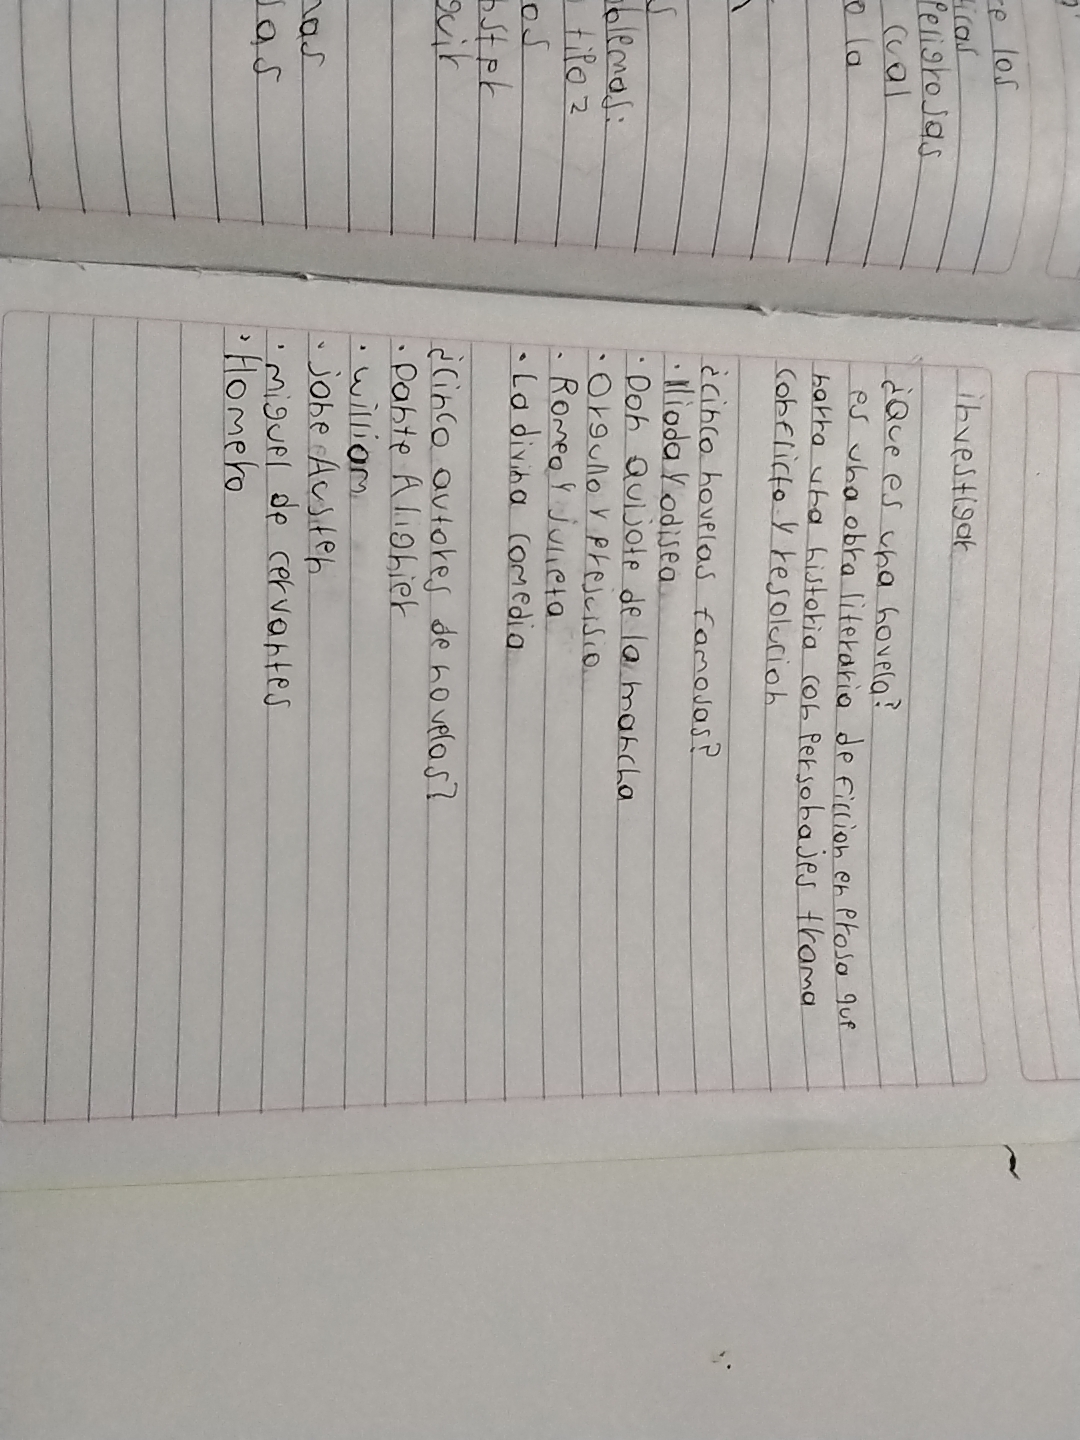 re los
ticas
Peligrosas
cual
o la
s
oblemas:
tipo?
os
nster
guir
mas
sas
investigar
¿Que es una novela?
es una obra literaria de ficcion en prosa que
narra una historia con personajes trama
conflicto y resolucion
¿cinco novelas famosas?
• Iliada y odisea
• Don quijote de la mancha
• Orgullo y prejuisio
• Romeo y julieta
• La divina comedia
¿cinco autores de novelas?
• Dante Alighier
• william
• jone Austen
• miguel de cervantes
• Homero